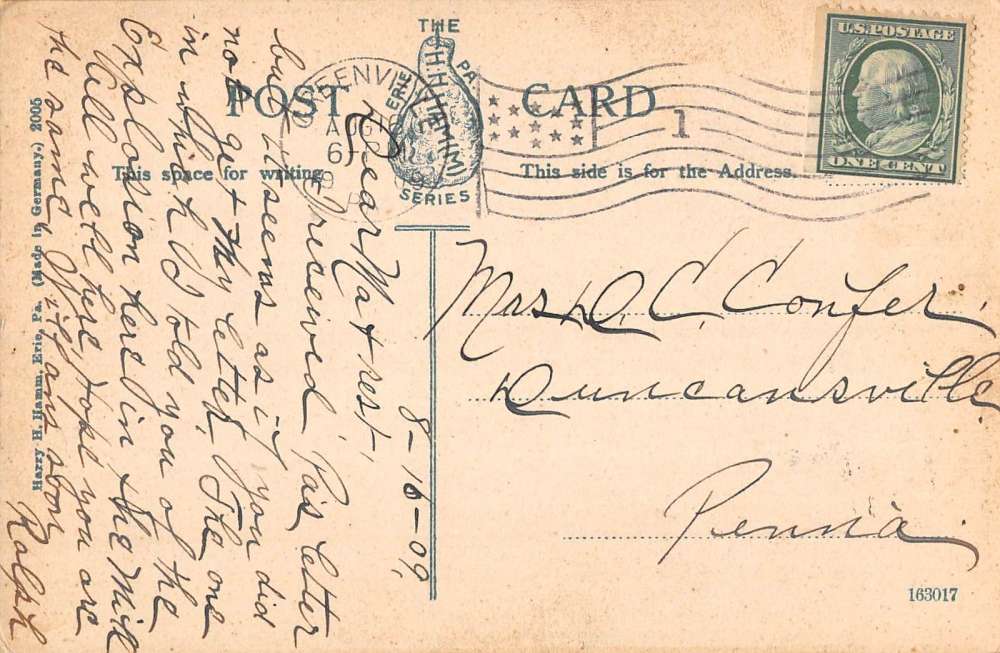 THE
HAMM
ERIE PA
SERIES
POST CARD
This space for writing.
This side is for the Address.
U.S. POSTAGE
ONE CENT
GREENVI
AUG 16
6
1
8-16-09,
Dear Ma & rest,
I received Pa's letter
but it seems as if you did
not get my letter, The one
in which I told you of the
Explosion here in the Mill
All well here, Hope you are
the same, Write soon
Ralph
Mrs D. C. Confer,
Duncansville
Penna
Harry H. Hamm, Erie, Pa. (Made in Germany.) 2005
163017